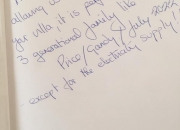 allowing us
your villa, it is perf
3 generational family like
Price/Gandy! July 2022
- except for the electricity supply!